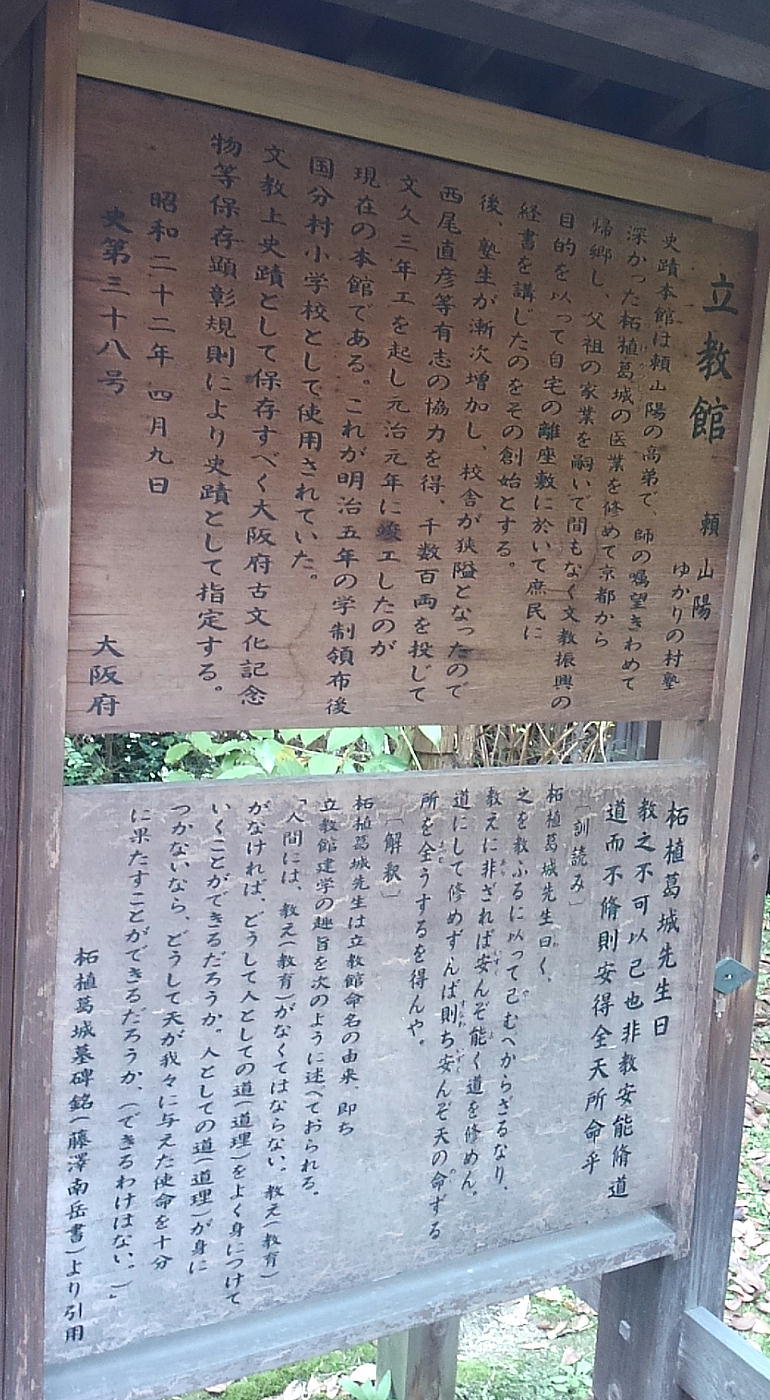 立教館
頼山陽
ゆかりの村塾
史蹟本館は頼山陽の高弟で、師の嘱望きわめて
深かった柘植葛城の医業を修めて京都から
帰郷し、父祖の家業を嗣いで間もなく文教振興の
目的を以って自宅の離座敷に於いて庶民に
経書を講じたのをその創始とする。
後、塾生が漸次増加し、校舎が狭隘となったので
西尾直彦等有志の協力を得、千数百両を投じて
文久三年工を起し元治元年に竣工したのが
現在の本館である。これが明治五年の学制領布後
国分村小学校として使用されていた。
文教上史蹟として保存すべく大阪府古文化記念
物等保存顕彰規則により史蹟として指定する。
昭和二十二年四月九日
史第三十八号
大阪府
柘植葛城先生曰
教之不可以已也非教安能脩道
道而不脩則安得全天所命乎
「訓読み」
柘植葛城先生曰く、
之を教ふるに以って已むべからざるなり、
教えに非ざれば安んぞ能く道を修めん。
道にして修めずんば則ち安んぞ天の命ずる
所を全うするを得んや。
「解釈」
柘植葛城先生は立教館命名の由来、即ち
立教館建学の趣旨を次のように述べておられる。
「人間には、教え(教育)がなくてはならない。教え(教育)
がなければ、どうして人としての道(道理)をよく身につけて
いくことができるだろうか。人としての道(道理)が身に
つかないなら、どうして天が我々に与えた使命を十分
に果たすことができるだろうか、(できるわけはない。)」
柘植葛城墓碑銘(藤澤南岳書)より引用